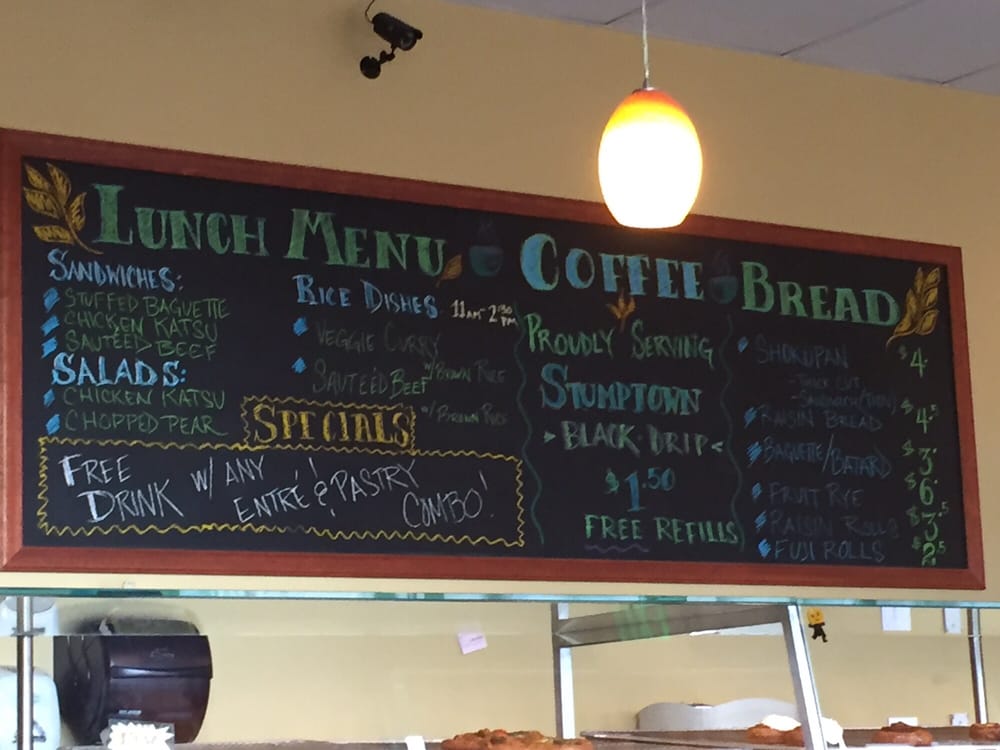 LUNCH MENU
SANDWICHES:
STUFFED BAGUETTE
CHICKEN KATSU
SAUTEED BEEF
SALADS:
CHICKEN KATSU
CHOPPED PEAR
RICE DISHES 11AM-2:30PM
VEGGIE CURRY
W/BROWN RICE
SAUTEED BEEF
W/BROWN RICE
SPECIALS
FREE DRINK W/ ANY ENTRÉ & PASTRY COMBO!
COFFEE
PROUDLY SERVING
STUMPTOWN
BLACK·DRIP
$1.50
FREE REFILLS
BREAD
SHOKUPAN $4.
-THICK CUT
-SANDWICH (THIN)
RAISIN BREAD $4.5
BAGUETTE/BATARD $3
FRUIT RYE $6
RAISIN ROLLS $3.5
FUJI ROLLS $2.5